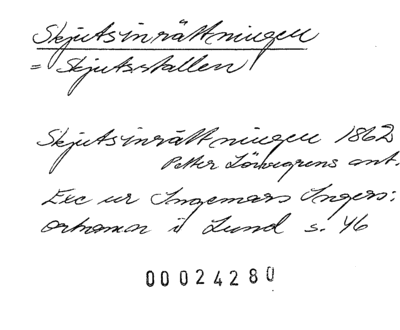 Skjutsinrättningen
= Skjutsstallen
Skjutsinrättningen 1862
Petter Lövegrens ant.
Exc ur Ingemars Ingers:
ortnamn i Lund s. 46
00024280